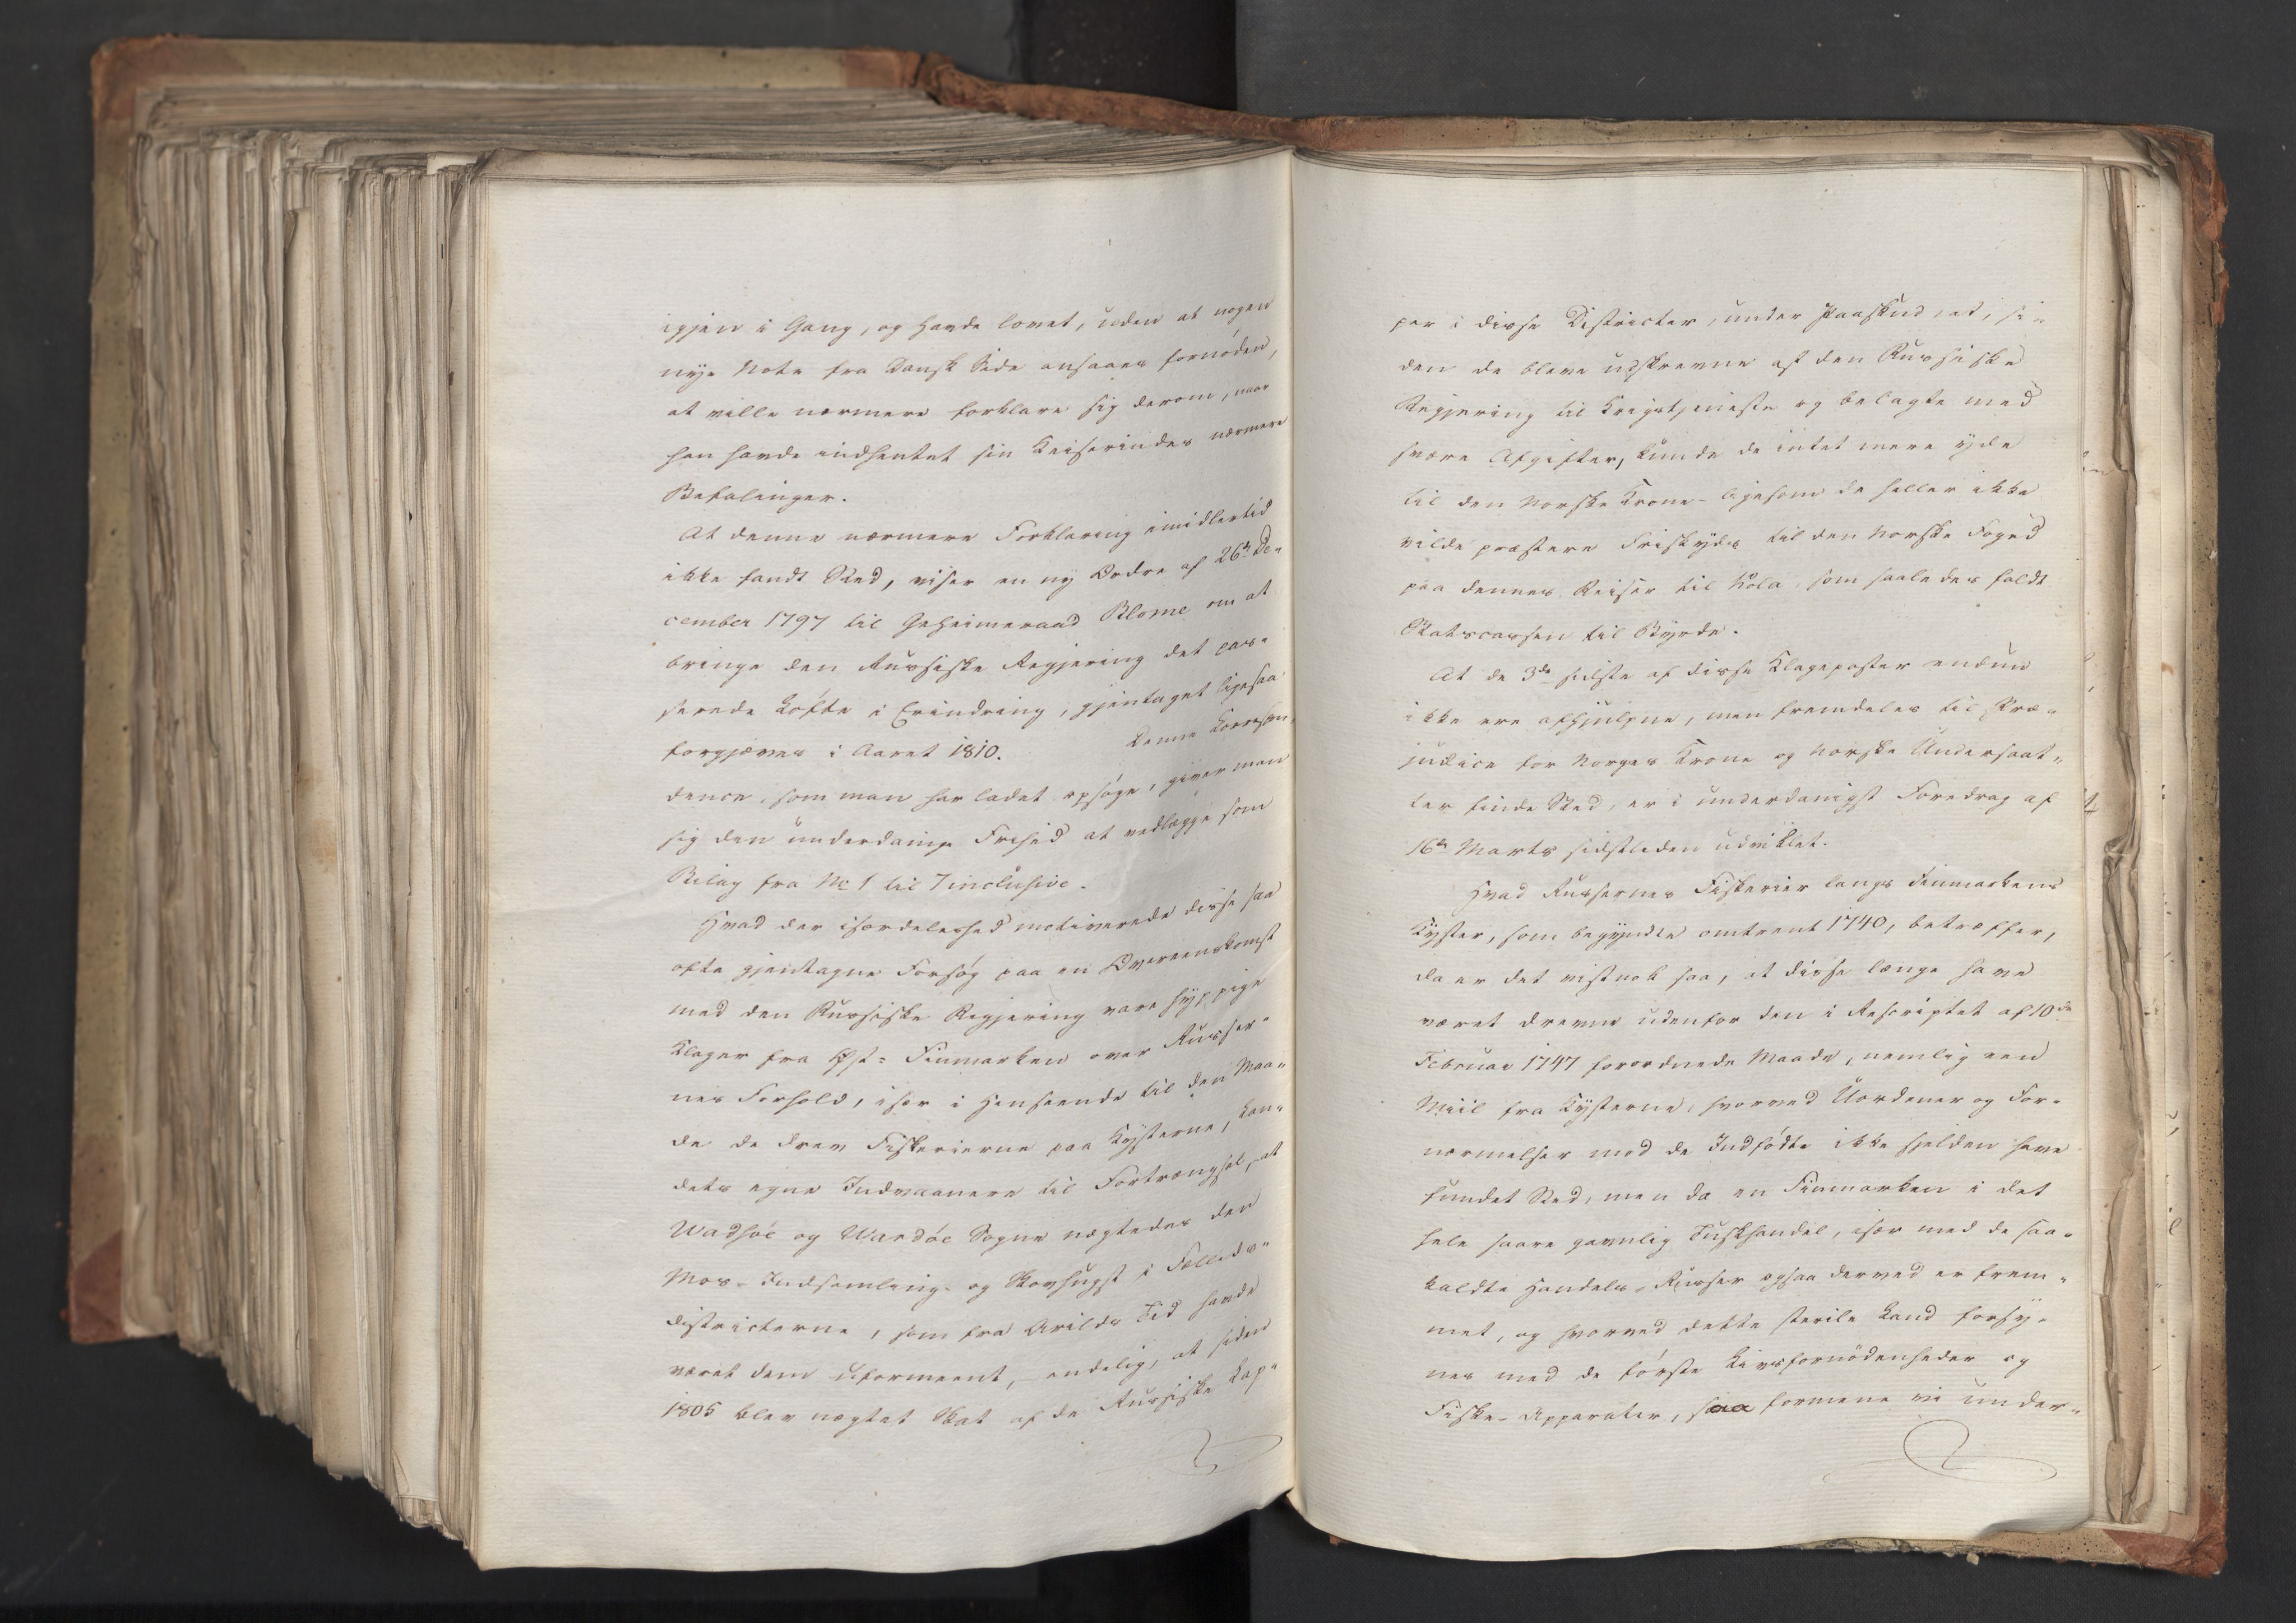 igjen i Gang, og havde lovet, uden at nogen
nye Note fra Dansk Side ansaaes fornöden,
at ville nærmere forklare sig derom, naar
han havde indhentet sin Keiserindes nærmere
Befalinger.
At denne nærmere Forklaring imidlertid
ikke fandt Sted, viser en ny Ordre af 26de De„
cember 1797 til Geheimeraad Blome om at
bringe den Russiske Regjering det pas„
serede Löfte i Erindring, gjentaget ligesaa
forgjæves i Aaret 1810. Denne Correspon„
dence, som man har ladet opsöge, giver man
sig den underdanige Frihed at vedlægge som
Bilag fra No 1 til 7 inclusive.
Hvad der isærdeleshed motiverede disse saa
ofte gjentagne Forsög paa en Overeenskomst
med den Russiske Regjering vare hyppige
Klager fra Öst-Finmarken over Russer„
nes Forhold, især i Henseende til den Maa„
de de drev Fiskerierne paa Kysterne, Lan„
dets egne Indvaanere til Fortrængsel, at
Wadsöe og Wardöe Sogne nægtedes den
Mos-Indsamling- og Skovhugst i Fælleds„
districterne, som fra Arilds Tid havde
været dem uformeent, endelig, at siden
1805 blev nægtet Skat af de Russiske Lap„
per i disse Districter, under Paaskud, at, si„
den de bleve udskrevne af den Russiske
Regjering til Krigstjeneste og belagte med
svære Afgifter, kunde de intet mere yde
til den Norske Krone- ligesom de heller ikke
vilde præstere Friskyds til den Norske Foged
paa dennes Reiser til Kola, som saaledes faldt
Statscassen til Byrde.
At de 3de sidste af disse Klageposter endnu
ikke ere afhjulpne, men fremdeles til Præ„
judice for Norges Krone og Norske Undersaat„
ter finde Sted, er i underdanigst Foredrag af
16de Marts sidstleden udviklet.
Hvad Russernes Fiskerier langs Finmarkens
Kyster, som begyndte omtrent 1740, betræffer,
da er det vistnok saa, at disse længe have
været drevne udenfor den i Rescriptet af 10de
Februar 1747 forordnede Maade, nemlig een
Miil fra Kysterne, hvorved Uordener og For„
nærmelser mod de Indfödte ikke sjelden have
fundet Sted, men da en Finmarken i det
hele saare gavnlig Tuskhandel, især med de saa„
kaldte Handels-Russer ogsaa derved er frem„
met, og hvorved dette sterile Land forsy„
nes med de förste Livsfornödenheder og
Fiske-Apparater, saa formene vi under„